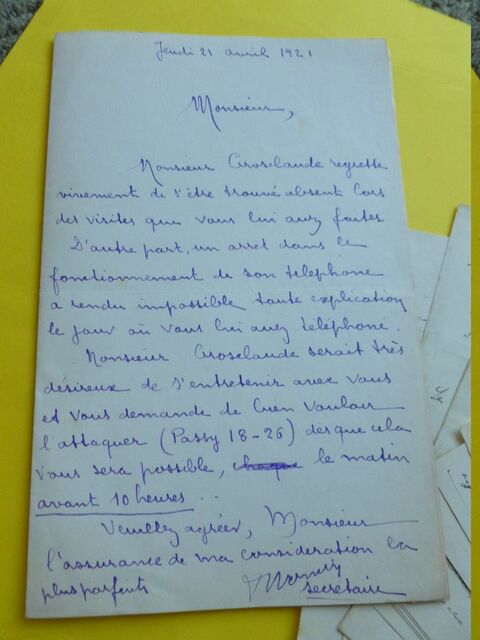 Jeudi 21 avril 1921
Monsieur,
Monsieur Grosclaude regrette
vivement de s'être trouvé absent lors
des visites que vous lui avez faites.
D'autre part, un arrêt dans le
fonctionnement de son téléphone
a rendu impossible toute explication
le jour où vous lui avez téléphoné.
Monsieur Grosclaude serait très
désireux de s'entretenir avec vous
et vous demande de bien vouloir
l'attaquer (Passy 18-26) dès que cela
vous sera possible, chaque le matin
avant 10 heures..
Veuillez agréer, Monsieur
l'assurance de ma considération la
plus parfaite
secrétaire